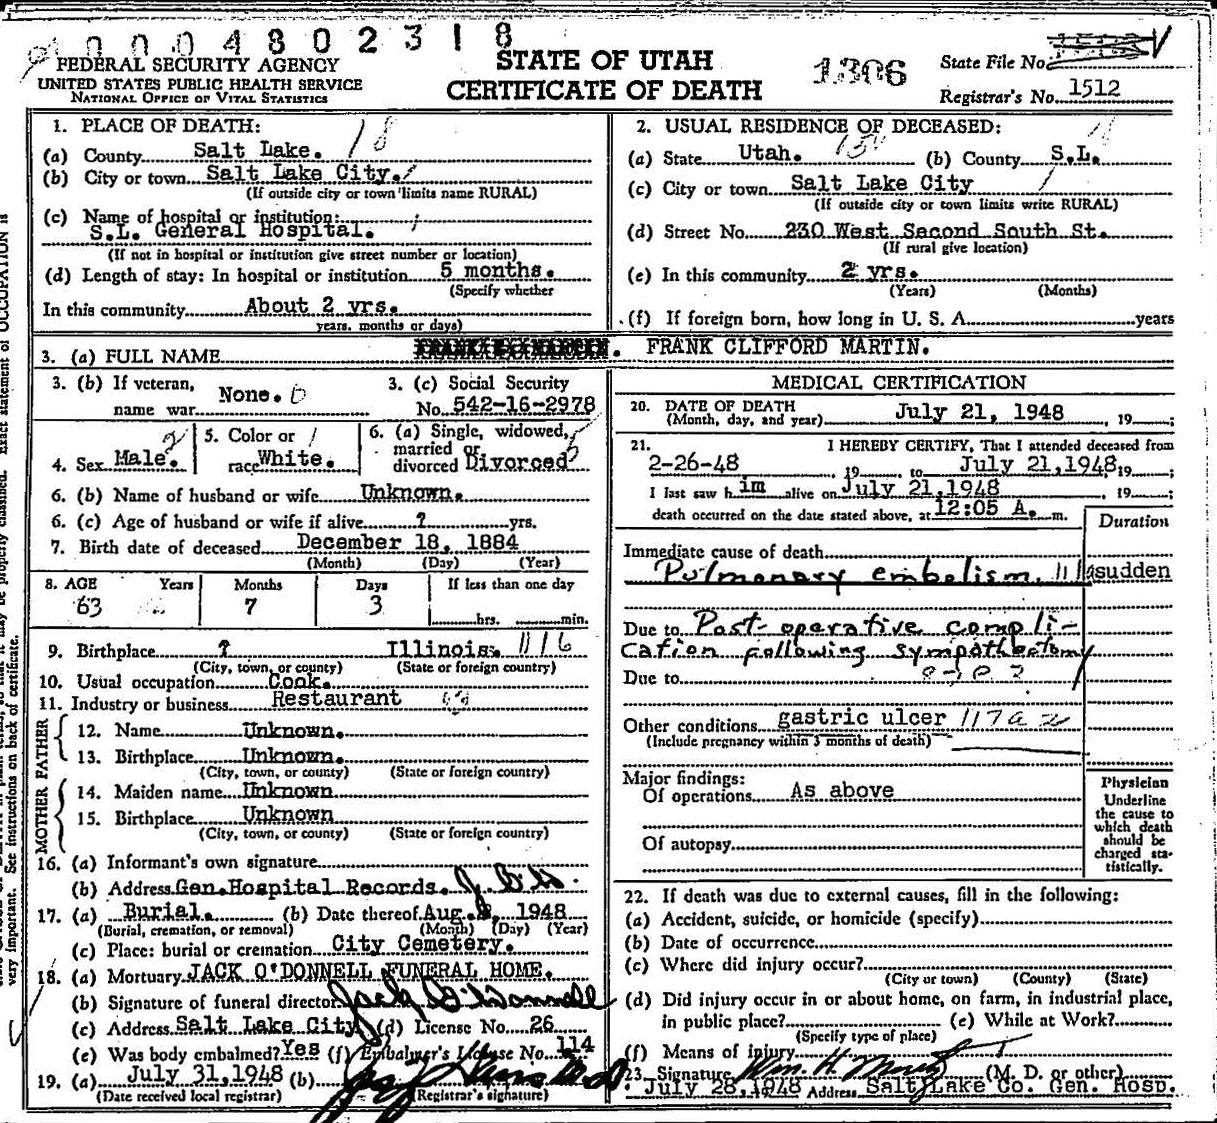 0004802318
FEDERAL SECURITY AGENCY
UNITED STATES PUBLIC HEALTH SERVICE
NATIONAL OFFICE OF VITAL STATISTICS
STATE OF UTAH
CERTIFICATE OF DEATH
1306
State File No.
Registrar's No. 1512
1. PLACE OF DEATH: 18
(a) County Salt Lake.
(b) City or town Salt Lake City.
(If outside city or town limits name RURAL)
(c) Name of hospital or institution:
S.L. General Hospital.
(If not in hospital or institution give street number or location)
(d) Length of stay: In hospital or institution 5 months.
(Specify whether
In this community About 2 yrs.
years, months or days)
2. USUAL RESIDENCE OF DECEASED:
(a) State Utah. (b) County S.L.
(c) City or town Salt Lake City
(If outside city or town limits write RURAL)
(d) Street No. 230 West Second South St.
(If rural give location)
(e) In this community 2 yrs.
(Years) (Months)
(f) If foreign born, how long in U. S. A. years
3. (a) FULL NAME FRANK CLIFFORD MARTIN.
3. (b) If veteran,
name war None.
3. (c) Social Security
No. 542-16-2978
4. Sex Male.
5. Color or
race White.
6. (a) Single, widowed,
married or
divorced Divorced
6. (b) Name of husband or wife Unknown.
6. (c) Age of husband or wife if alive ? yrs.
7. Birth date of deceased December 18, 1884
(Month) (Day) (Year)
8. AGE Years Months Days If less than one day
63 7 3 hrs. min.
9. Birthplace ? Illinois. 116
(City, town, or county) (State or foreign country)
10. Usual occupation Cook.
11. Industry or business Restaurant
FATHER
12. Name Unknown.
13. Birthplace Unknown.
(City, town, or county) (State or foreign country)
MOTHER
14. Maiden name Unknown
15. Birthplace Unknown
(City, town, or county) (State or foreign country)
16. (a) Informant's own signature
(b) Address Gen.Hospital Records.
17. (a) Burial. (b) Date thereof Aug. 1948
(Burial, cremation, or removal) (Month) (Day) (Year)
(c) Place: burial or cremation City Cemetery.
18. (a) Mortuary JACK O'DONNELL FUNERAL HOME.
(b) Signature of funeral director Jack O'Donnell
(c) Address Salt Lake City (d) License No. 26
(e) Was body embalmed? Yes (f) Embalmer's License No. 114
19. (a) July 31,1948 (b)
(Date received local registrar) (Registrar's signature)
MEDICAL CERTIFICATION
20. DATE OF DEATH
(Month, day, and year) July 21, 1948, 19 ;
21. I HEREBY CERTIFY, That I attended deceased from
2-26-48, 19 to July 21,1948, 19 ;
I last saw h im alive on July 21,1948, 19 ;
death occurred on the date stated above, at 12:05 A. m.
Duration
Immediate cause of death
Pulmonary embolism. sudden
Due to Post-operative compli-
cation following sympathectomy
Due to
Other conditions gastric ulcer 117a
(Include pregnancy within 3 months of death)
Major findings:
Of operations As above
Of autopsy
Physician
Underline
the cause to
which death
should be
charged sta-
tistically.
22. If death was due to external causes, fill in the following:
(a) Accident, suicide, or homicide (specify)
(b) Date of occurrence
(c) Where did injury occur?
(City or town) (County) (State)
(d) Did injury occur in or about home, on farm, in industrial place,
in public place? (e) While at Work?
(Specify type of place)
(f) Means of injury
23. Signature Wm. H. (M. D. or other)
July 28,1948 Address Salt Lake Co. Gen. Hosp.
very important. See instructions on back of certificate.
it may be properly classified. Exact statement of OCCUPATION is